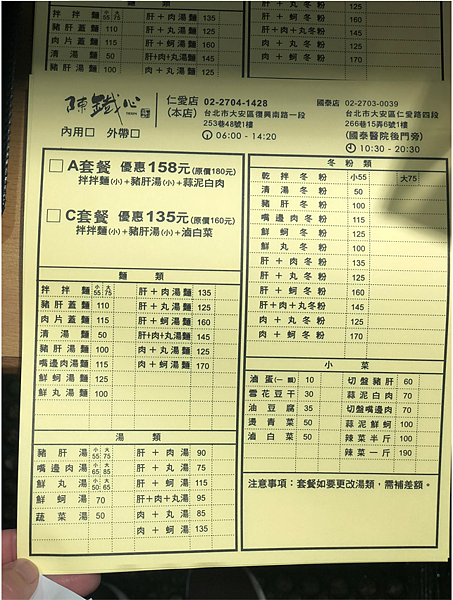 肝＋肉湯麵 135
豬肝蓋麵 110
肉片蓋麵 115
清湯麵 50
肝＋丸湯麵 125
肝＋蚵湯麵 160
肝+肉+丸湯麵 145
肉＋丸湯麵 125
陳鐵心
內用□ 外帶□
仁愛店 02-2704-1428
(本店) 台北市大安區復興南路一段
253巷48號1樓
06:00 - 14:20
國泰店 02-2703-0039
台北市大安區仁愛路四段
266巷15弄6號1樓
(國泰醫院後門旁)
10:30 - 20:30
□A套餐 優惠158元(原價180元)
拌拌麵(小)+豬肝湯(小)+蒜泥白肉
□C套餐 優惠135元(原價160元)
拌拌麵(小)+豬肝湯(小)+滷白菜
麵類
拌拌麵 小55 大75
豬肝蓋麵 110
肉片蓋麵 115
清湯麵 50
豬肝湯麵 100
嘴邊肉湯麵 115
鮮蚵湯麵 125
鮮丸湯麵 100
肝＋肉湯麵 135
肝＋丸湯麵 125
肝＋蚵湯麵 160
肝+肉+丸湯麵 145
肉＋丸湯麵 125
肉＋蚵湯麵 170
湯類
豬肝湯 小55 大75
嘴邊肉湯 小65 大85
鮮丸湯 小50 大65
鮮蚵湯 70
蔬菜湯 50
肝＋肉湯 90
肝＋丸湯 75
肝＋蚵湯 115
肝+肉+丸湯 95
肉＋丸湯 85
肉＋蚵湯 135
冬粉類
乾拌冬粉 小55 大75
清湯冬粉 50
豬肝冬粉 100
嘴邊肉冬粉 115
鮮蚵冬粉 125
鮮丸冬粉 100
肝＋肉冬粉 135
肝＋丸冬粉 125
肝＋蚵冬粉 160
肝+肉+丸冬粉 145
肉＋丸冬粉 125
肉＋蚵冬粉 170
小菜
滷蛋(一顆) 10
雪花豆干 30
油豆腐 35
燙青菜 50
滷白菜 50
切盤豬肝 60
蒜泥白肉 70
切盤嘴邊肉 70
蒜泥鮮蚵 100
辣菜半斤 100
辣菜一斤 190
注意事項：套餐如要更改湯類，需補差額。